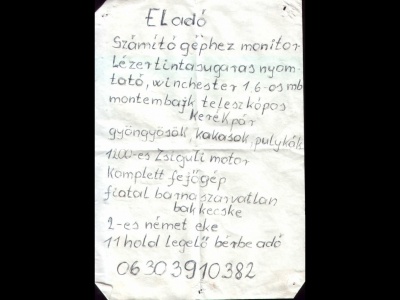 ELadó
Számító géphez monitor
Lézertintasugaras nyom
tató, winchester 1 6-os mb
montembajk teleszkópos
kerékpár
gyöngyösök, kakasok pulykák
1200-es Zsiguli motor
komplett fejőgép
fiatal barna szarvatlan
bakkecske
2-es német eke
11 hold legelő bérbe adó
06303910382